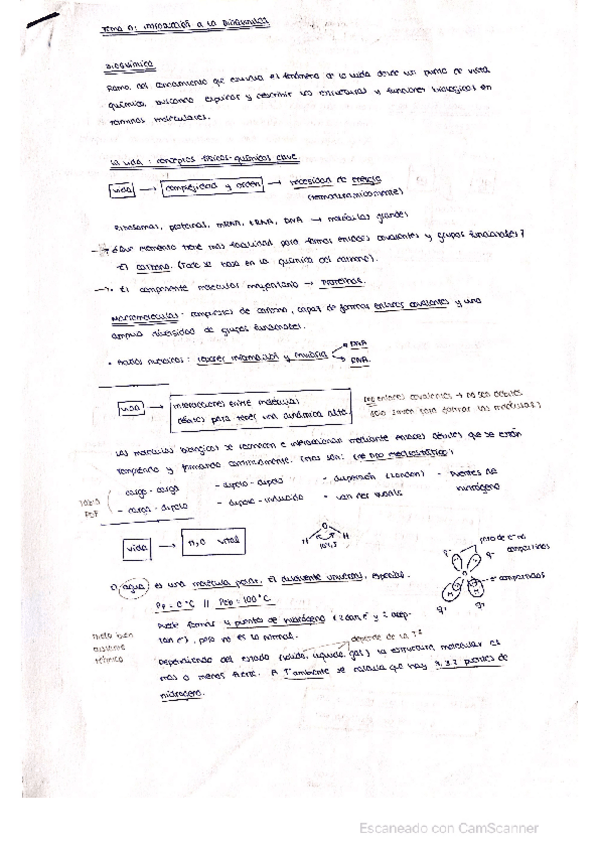 Tema 0: Introducción a la Bioquímica
BIOQUÍMICA
Rama del conocimiento que estudia el fenómeno de la vida desde un punto de vista
química, buscando explicar y describir las estructuras y funciones biológicas en
términos moleculares.
La vida: conceptos físicos-químicos clave
vida → complejidad y orden → necesidad de energía
(termodinámicamente)
Ribosomas, proteínas, mRNA, tRNA, DNA → moléculas grandes
¿Qué elemento tiene más facilidad para formar enlaces covalentes y grupos funcionales?
El carbono. (Todo se basa en la química del carbono).
→ El componente molecular mayoritario → Proteínas.
Macromoléculas: compuestos de carbono, capaz de formar enlaces covalentes y una
amplia diversidad de grupos funcionales.
• Ácidos nucleicos: DNA
RNA.
vida → interacciones entre moléculas
débiles para tener una dinámica alta.
enlaces covalentes → no son débiles
solo sirven para formar las moléculas)
Las moléculas biológicas se reconocen e interaccionan mediante enlaces débiles que se están
rompiendo y formando continuamente. (de tipo electrostático)
- carga - carga - dipolo - dipolo - dispersión (London) - Puentes de
- carga - dipolo - dipolo - inducido - van der Waals hidrógeno
tabla
PDF
vida → H₂O vital
O
H H
104,5
e⁻ compartidos
El agua es una molécula polar. El disolvente universal, especial.
PF = 0°C // PEb = 100°C
Puede formar 4 puentes de hidrógeno (2 dan e⁻ y 2 acep-
tan e⁻), pero no es lo normal.
depende de la Tª
Dependiendo del estado (sólido, líquido, gas) la estructura molecular es
más o menos fuerte. A Tª ambiente se calcula que hay puentes de
hidrógeno.
muy buen
aislante
térmico
Escaneado con CamScanner